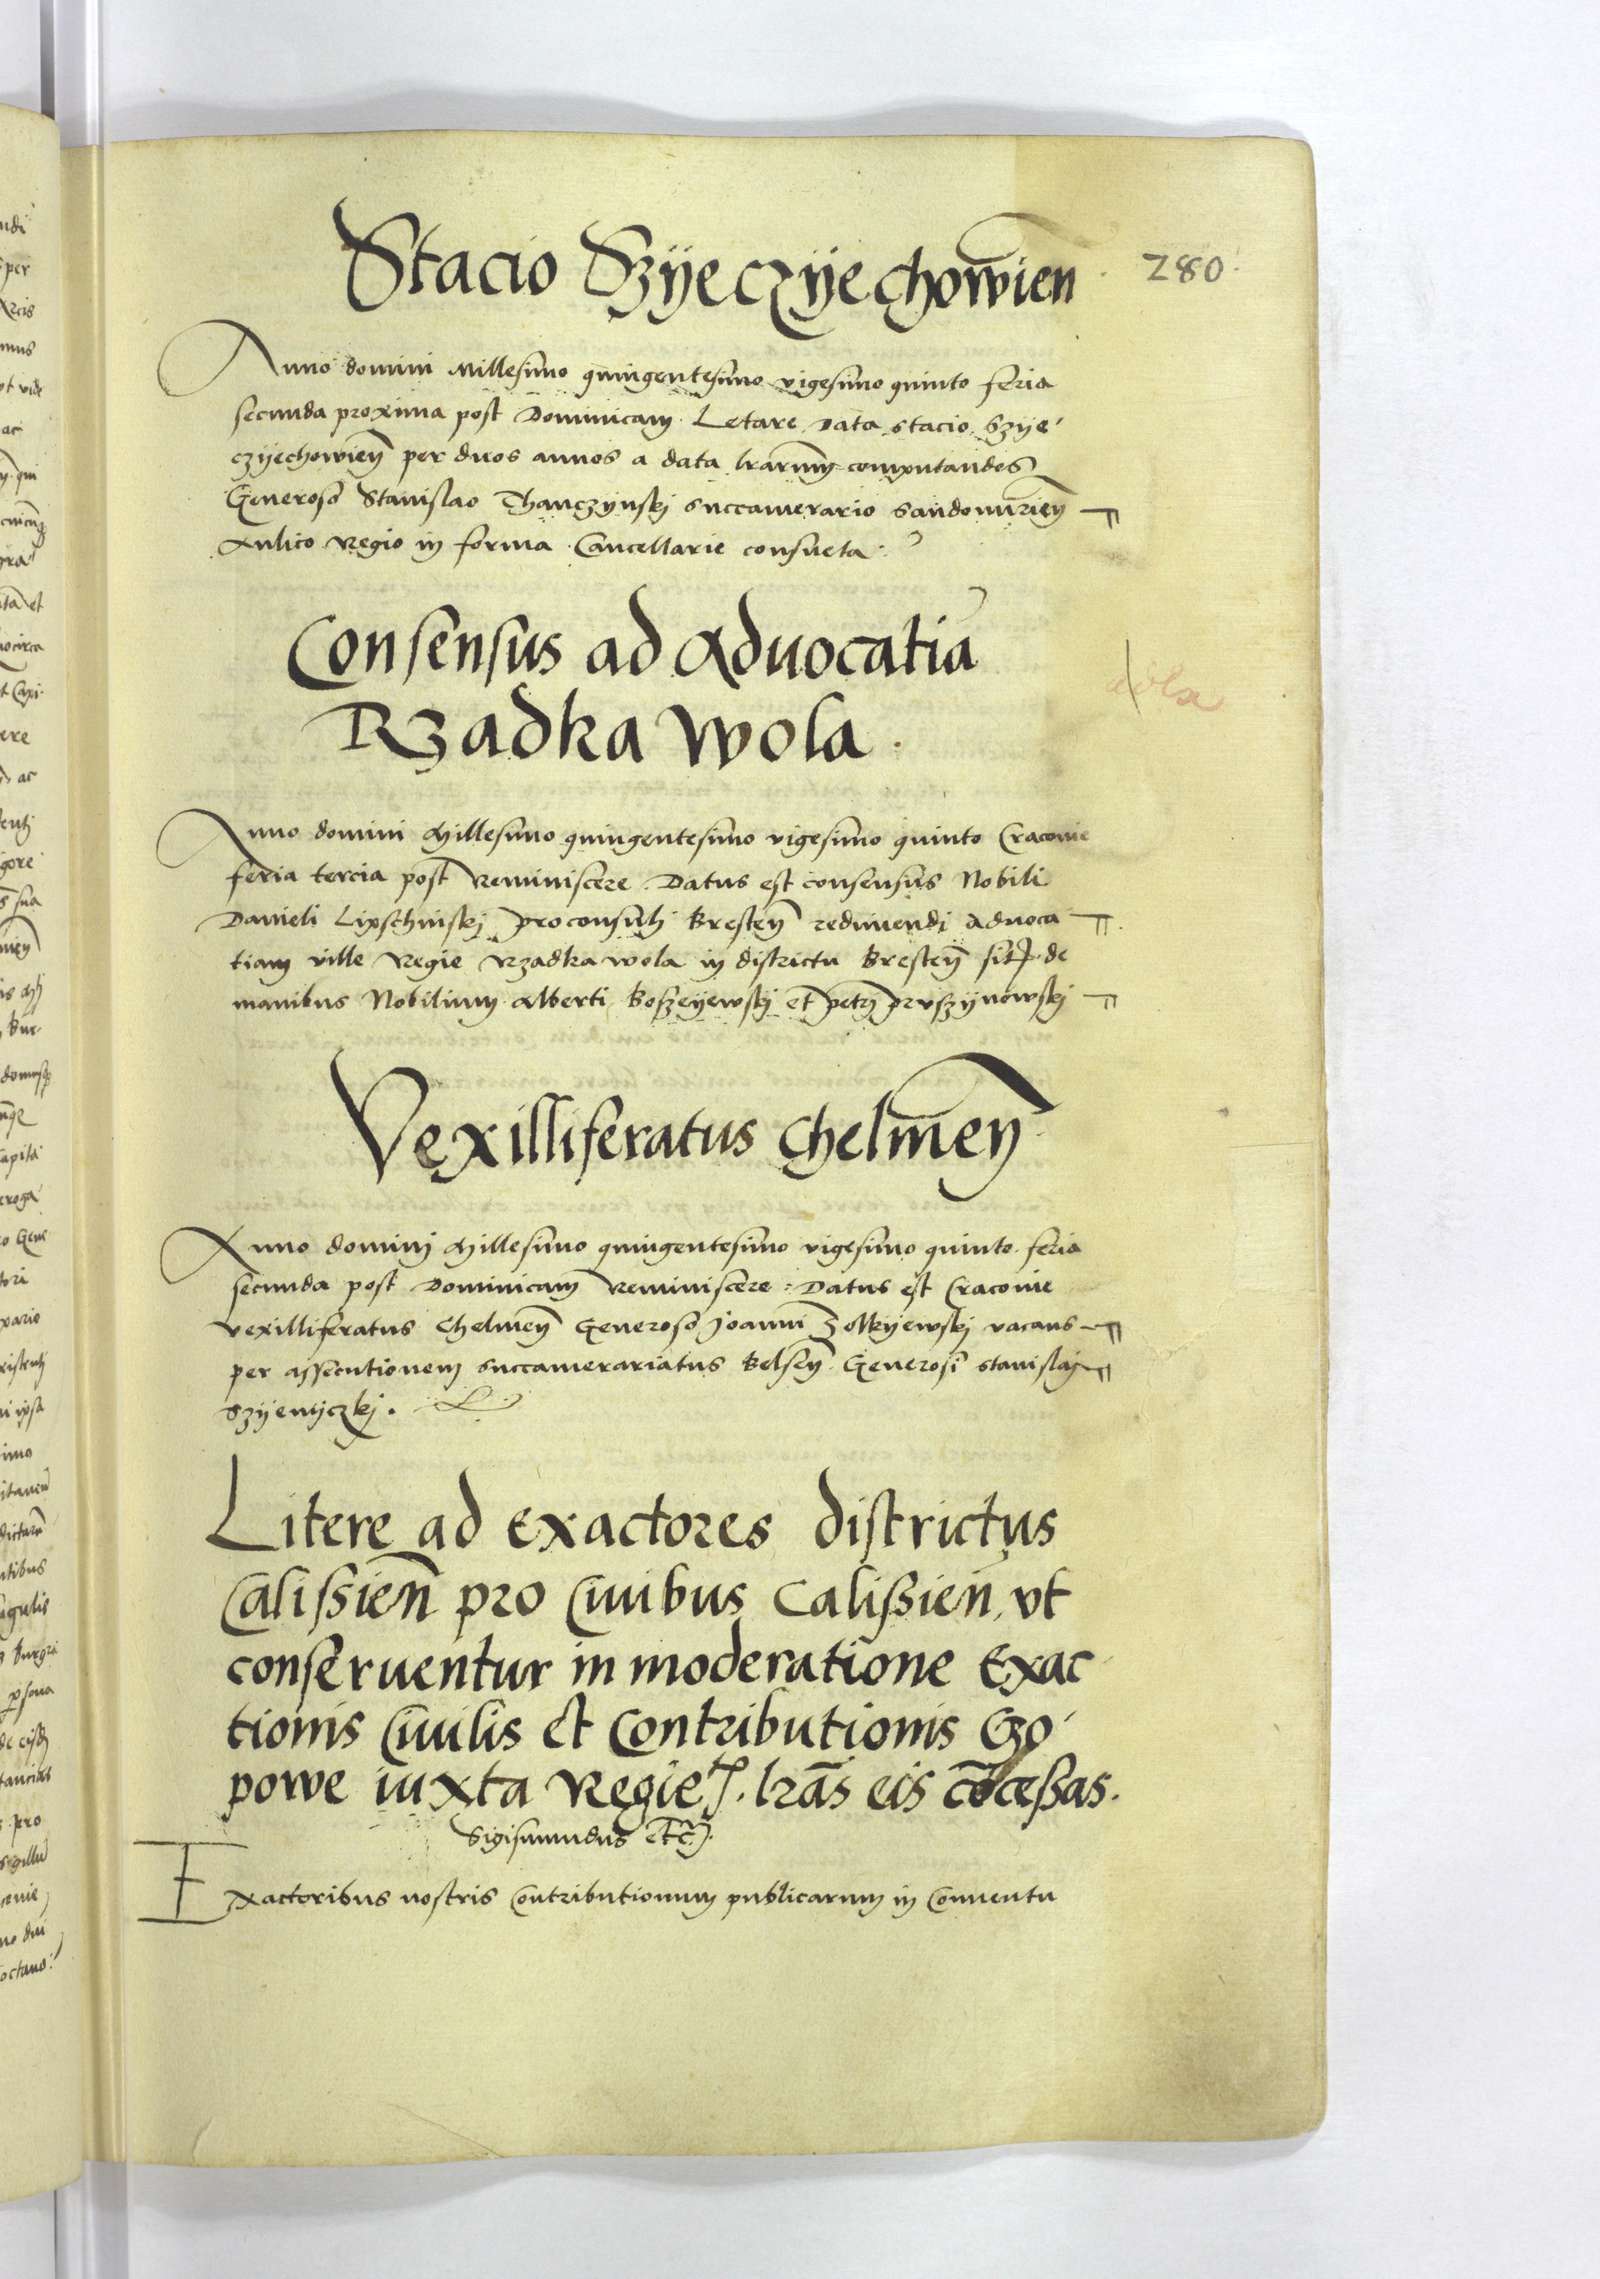 Stacio Szijeczijechowien̄
280
Anno domini Millesimo quingentesimo vigesimo quinto feria
secunda proxima post Dominicam Letare data stacio Szije
czijechowien̄ per duos annos a data l̄rarum computandos
Generoso Stanislao Thanczynskj succamerario Sandomirien̄
Aulico Regio in forma Cancellarie consueta
Consensus ad Aduocatiā
Rzadka wola
Anno domini Millesimo quingentesimo vigesimo quinto Cracouie
feria tercia post Reminiscere Datus est consensus Nobili
Danieli Lipschinskj proconsuli Bresten̄ redimendi aduoca
tiam ville Regie Rzadka wola in districtu Bresten̄ de
manibus Nobilium Alberti Koszeijewskj et petrj pruszijnowskj
Vexilliferatus Chelmen̄
Anno dominj Millesimo quingentesimo vigesimo quinto feria
secunda post Dominicam Reminiscere Datus est Cracouie
vexilliferatus Chelmen̄ Generoso Joanni Zolkijewskj vacans
per assecutionem succamerariatus Belsen̄ Generosi Stanislaj
Szijenijczkj.
Litere ad exactores districtus
Calissien̄ pro Ciuibus Calissien̄ vt
conseruentur in moderatione Exac
tionis Ciuilis et Contributionis Czo
powe iuxta Regie l̄ras eis cōcessas.
Sigismundus etc̄
Exactoribus nostris Contributionum publicarum in Conuentu